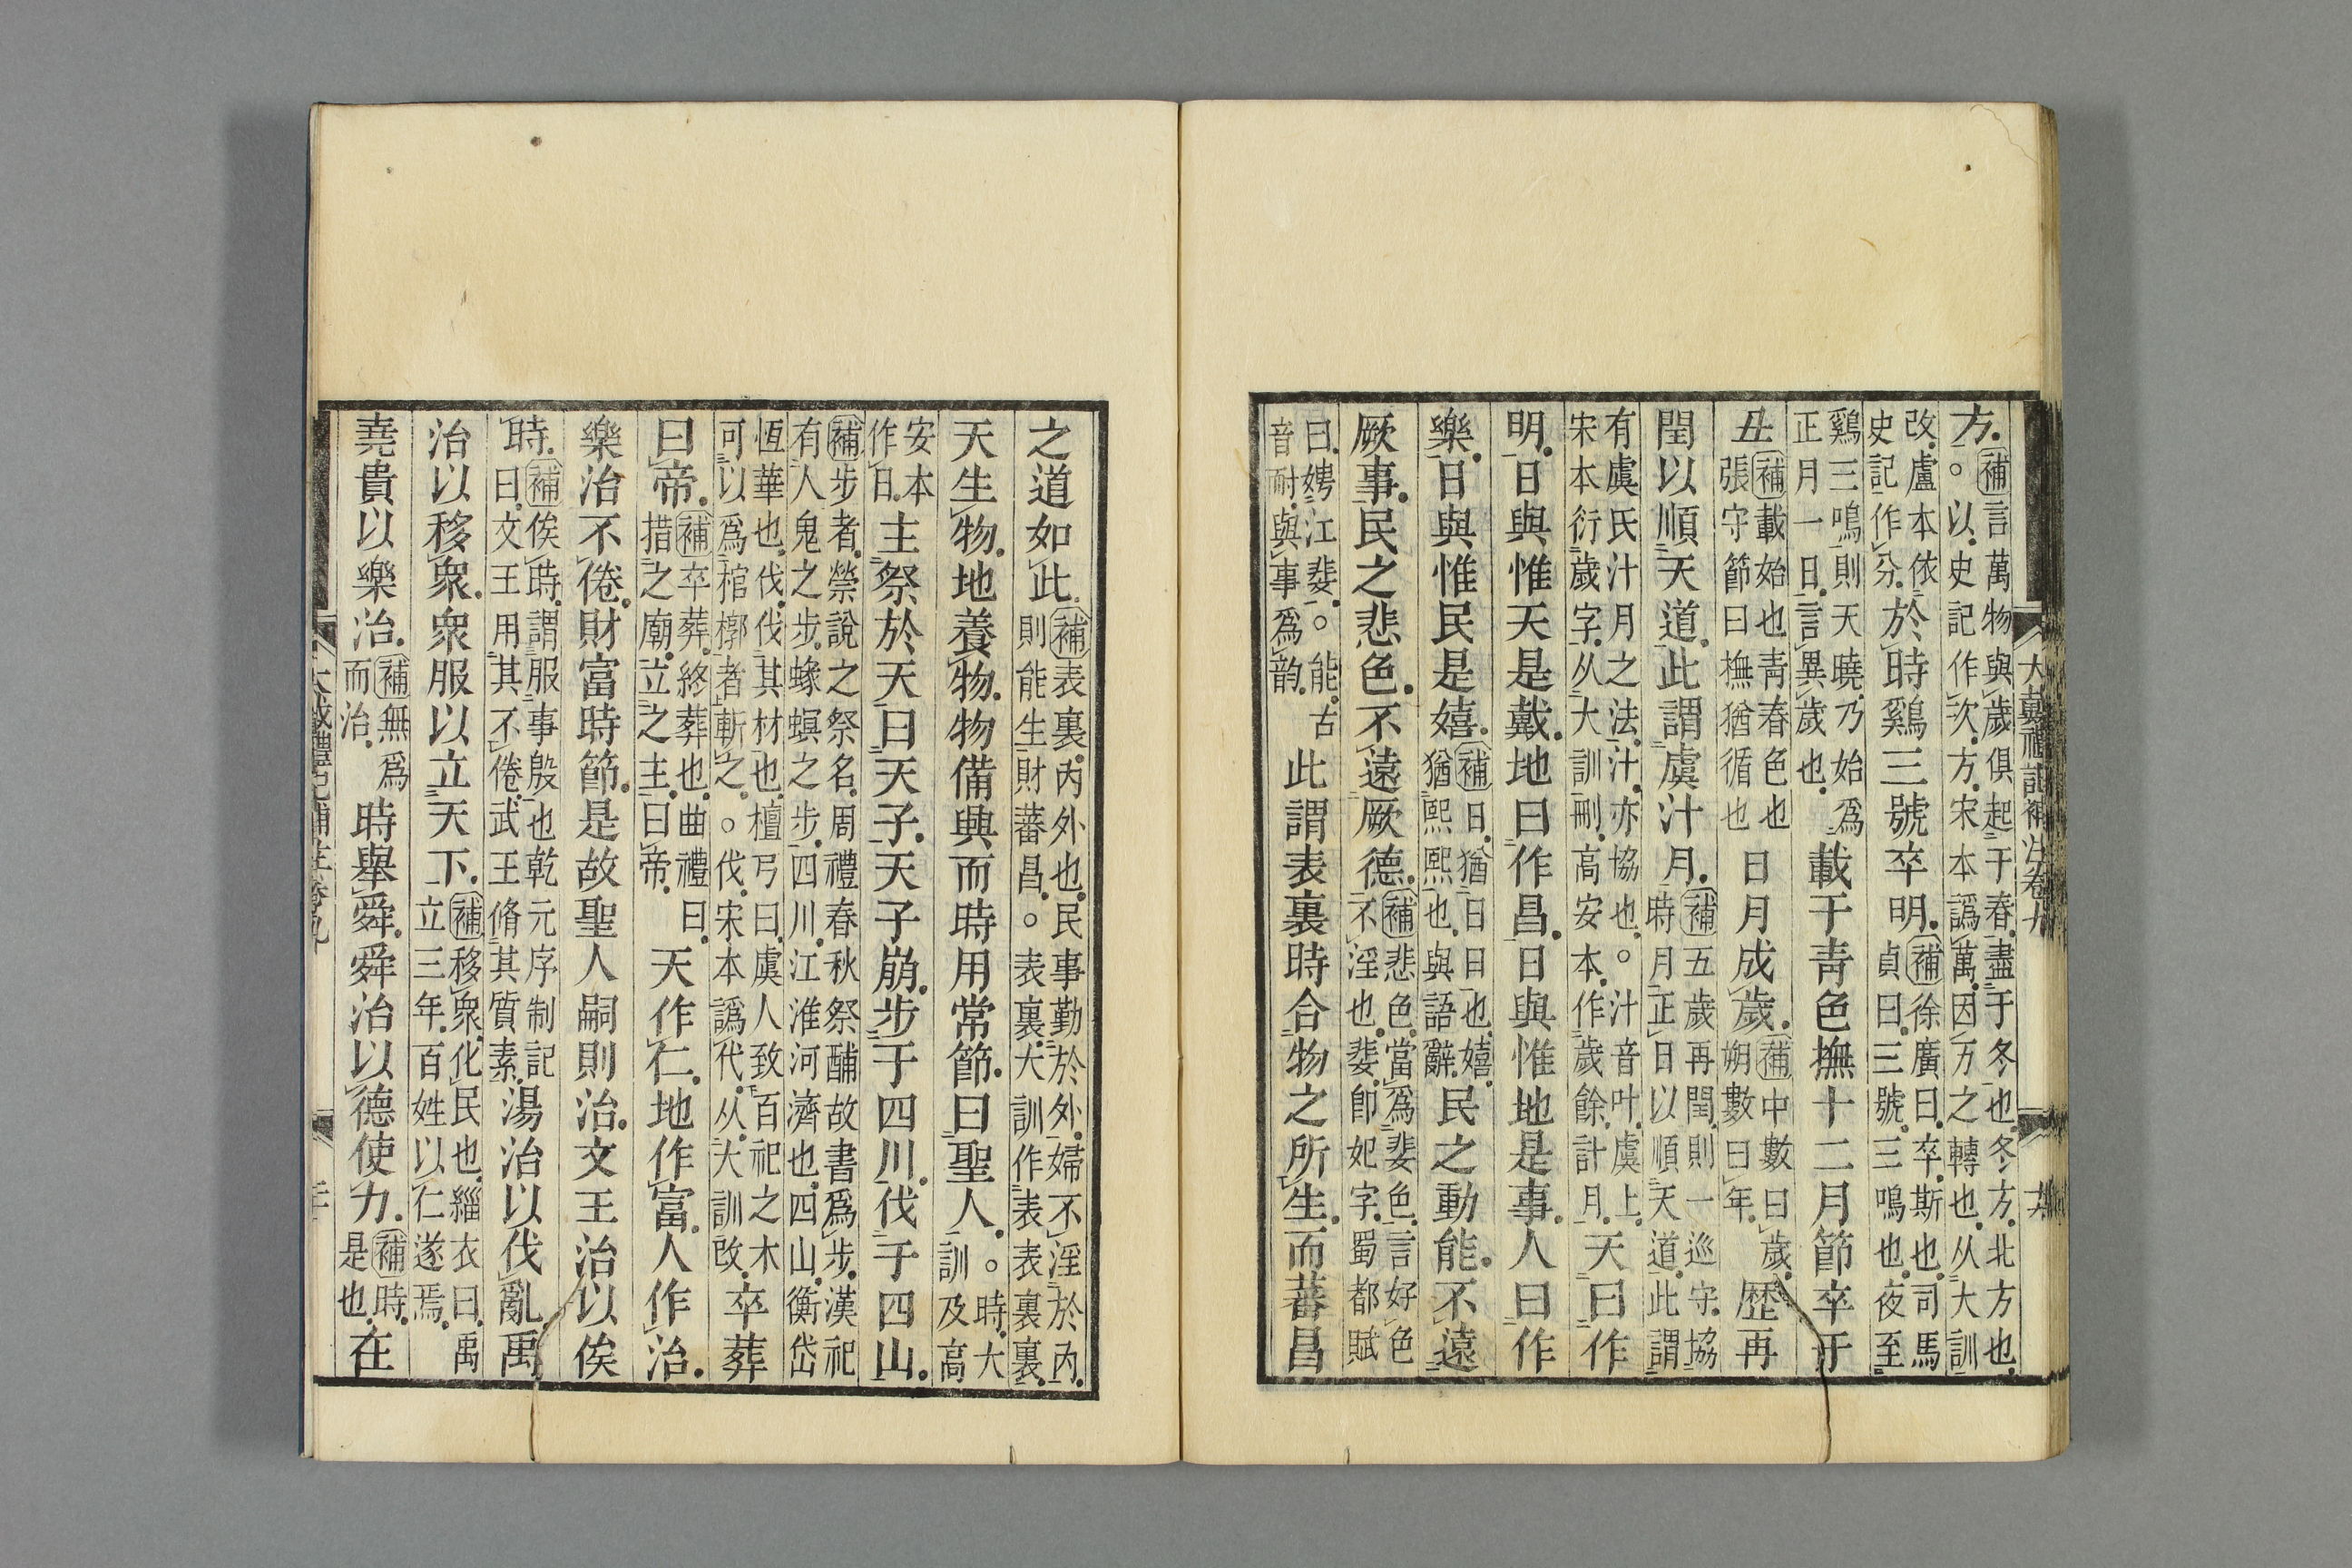 大戴禮記補注卷九
方補言萬物與歲俱起于春盡于冬也冬方北方也○以史記作次方宋本譌萬因万之轉也从大訓
改盧本依史記作分於時鷄三號卒明補徐廣曰卒斯也司馬貞曰三號三鳴也夜至
鷄三鳴則天曉乃始爲正月一日言異歲也載于青色撫十二月節卒于
丑補載始也青春色也張守節曰撫猶循也日月成歲補中數曰歲朔數曰年歷再
閏以順天道此謂虞汁月補五歲再閏則一巡守協時月正日以順天道此謂
有虞氏汁月之法汁亦協也○汁音叶虞上宋本衍歲字从大訓刪高安本作歲餘計月天曰作
明日與惟天是戴地曰作昌日與惟地是事人曰作
樂日與惟民是嬉補日猶日日也嬉猶熙熙也與語辭民之動能不遠
厥事民之悲色不遠厥德補悲色當爲婓色言好色不淫也婓卽妃字蜀都賦
曰娉江婓○能古音耐與事爲韵此謂表裏時合物之所生而蕃昌
之道如此補表裏內外也民事勤於外婦不淫於內則能生財蕃昌○表裏大訓作表表裏裏
天生物地養物物備興而時用常節曰聖人○時大訓及高
安本作日主祭於天曰天子天子崩步于四川伐于四山
補步者縈說之祭名周禮春秋祭酺故書爲步漢祀有人鬼之步蝝螟之步四川江淮河濟也四山衡岱
恆華也伐伐其材也檀弓曰虞人致百祀之木可以爲棺槨者斬之○伐宋本譌代从大訓改卒葬
曰帝補卒葬終葬也曲禮曰措之廟立之主曰帝天作仁地作富人作治
樂治不倦財富時節是故聖人嗣則治文王治以俟
時補俟時謂服事殷也乾元序制記曰文王用其不倦武王脩其質素湯治以伐亂禹
治以移衆衆服以立天下補移衆化民也緇衣曰禹立三年百姓以仁遂焉
堯貴以樂治補無爲而治時舉舜舜治以德使力補時是也在